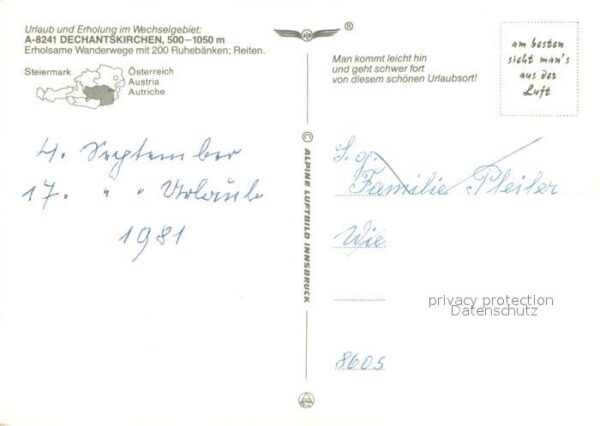 Urlaub und Erholung im Wechselgebiet:
A-8241 DECHANTSKIRCHEN, 500—1050 m
Erholsame Wanderwege mit 200 Ruhebänken; Reiten.
Steiermark
Österreich
Austria
Autriche
4. September
17. " " Urlaub
1981
© ALPINE LUFTBILD INNSBRUCK
®
Man kommt leicht hin
und geht schwer fort
von diesem schönen Urlaubsort!
am besten
sieht man's
aus der
Luft
S. g.
Familie Pleiler
Wie
8605
privacy protection
Datenschutz